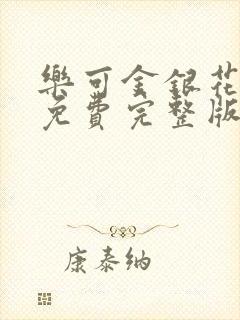 樂可金銀花
免費完整版
康泰纳